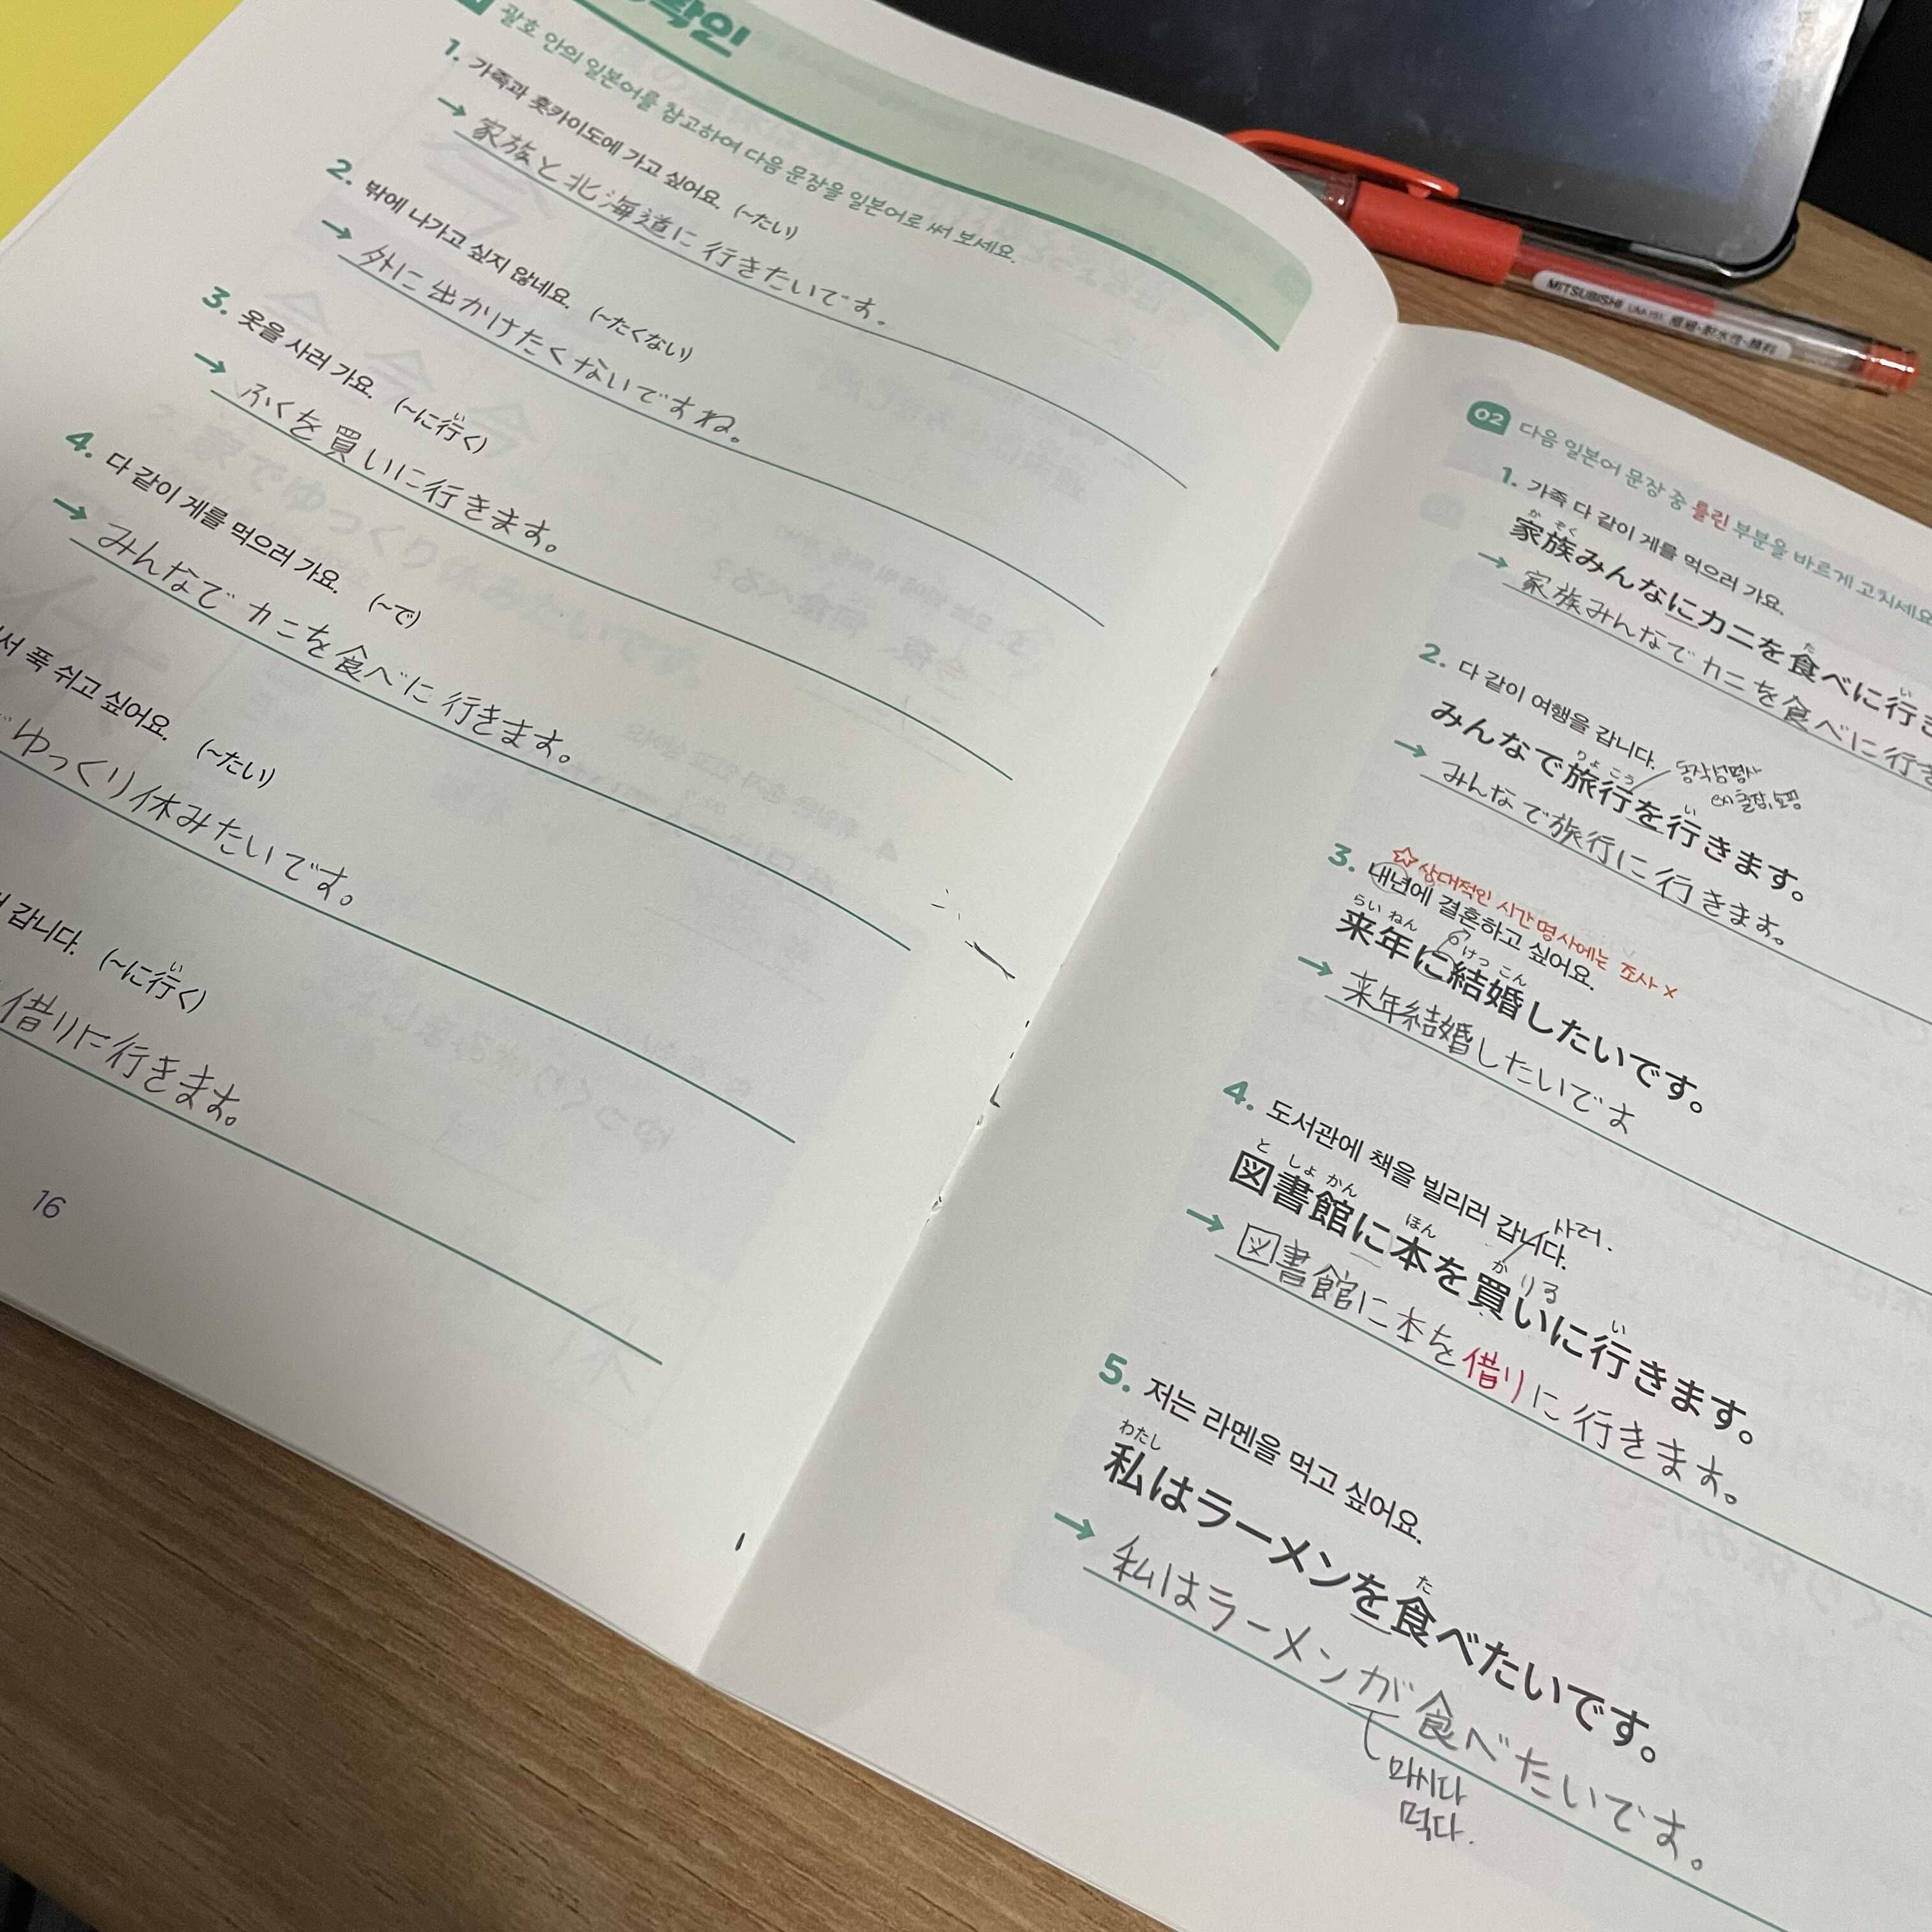 확인
괄호 안의 일본어를 참고하여 다음 문장을 일본어로 써 보세요.
1. 가족과 홋카이도에 가고 싶어요. (~たい)
→ 家族と北海道に行きたいです。
2. 밖에 나가고 싶지 않네요. (~たくない)
→ 外に出かけたくないですね。
3. 옷을 사러 가요. (~に行く)
い
→ ふくを買いに行きます。
4. 다 같이 게를 먹으러 가요. (~で)
→ みんなでカニを食べに行きます。
서 푹 쉬고 싶어요. (~たい)
ゆっくり休みたいです。
갑니다. (~に行く)
い
借りに行きます。
16
02 다음 일본어 문장 중 틀린 부분을 바르게 고치세요
1. 가족 다 같이 게를 먹으러 가요.
か ぞく た い
家族みんなにカニを食べに行き
→ 家族みんなでカニを食べに行き
2. 다 같이 여행을 갑니다.
동작성명사
りょ こう い
みんなで旅行を行きます。
→ みんなで旅行に行きます。
☆상대적인 시간명사에는 조사 x
3. 내년에 결혼하고 싶어요.
らい ねん けっ こん
来年に結婚したいです。
→ 来年結婚したいです
4. 도서관에 책을 빌리러 갑니다.
사러.
と しょ かん ほん か い
りる
図書館に本を買いに行きます。
→ 図書館に本を借りに行きます。
5. 저는 라멘을 먹고 싶어요.
わたし た
私はラーメンを食べたいです。
→ 私はラーメンが食べたいです。
마시다
먹다.
MITSUBISHI